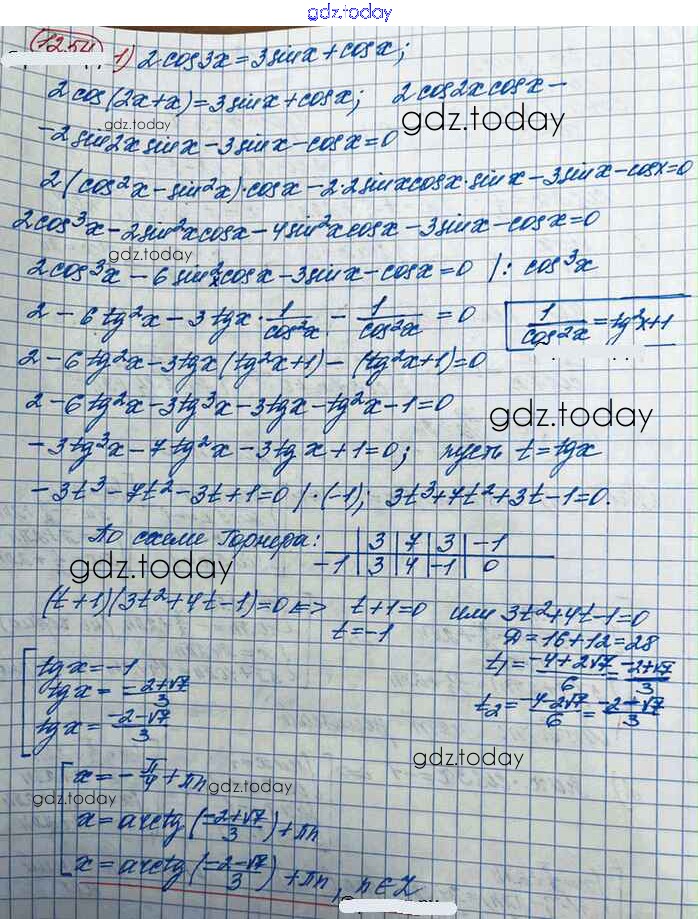 gdz.today
12.54 1) 2cos3x=3sinx+cosx;
2cos(2x+x)=3sinx+cosx; 2cos2xcosx-
gdz.today gdz.today
-2sin2xsinx-3sinx-cosx=0
2(cos²x-sin²x)·cosx-2·2sinxcosx·sinx-3sinx-cosx=0
2cos³x-2sin²xcosx-4sin²xcosx-3sinx-cosx=0
gdz.today
2cos³x-6sin²xcosx-3sinx-cosx=0 |:cos³x
2-6tg²x-3tgx·1/cos²x-1/cos²x=0 1/cos²x=tg²x+1
2-6tg²x-3tgx(tg²x+1)-(tg²x+1)=0
2-6tg²x-3tg³x-3tgx-tg²x-1=0
gdz.today
-3tg³x-7tg²x-3tgx+1=0; пусть t=tgx
-3t³-7t²-3t+1=0 |·(-1); 3t³+7t²+3t-1=0.
По схеме Горнера: | 3 | 7 | 3 | -1
-1 | 3 | 4 | -1 | 0
gdz.today
(t+1)(3t²+4t-1)=0 <=> t+1=0 или 3t²+4t-1=0
t=-1 D=16+12=28
tgx=-1 t₁=(-4+2√7)/6=(-2+√7)/3
tgx=(-2+√7)/3
tgx=(-2-√7)/3 t₂=(-4-2√7)/6=(-2-√7)/3
gdz.today
x=-π/4+πn
gdz.today gdz.today
x=arctg((-2+√7)/3)+πn
x=arctg((-2-√7)/3)+πn, n∈Z